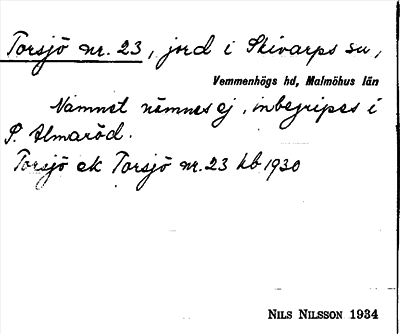 Torsjö nr. 23, jord i Skivarps sn,
Vemmenhögs hd, Malmöhus län
Namnet nämnes ej, inbegripes i
P. Almaröd.
Torsjö ek Torsjö nr. 23 kb 1930
NILS NILSSON 1934